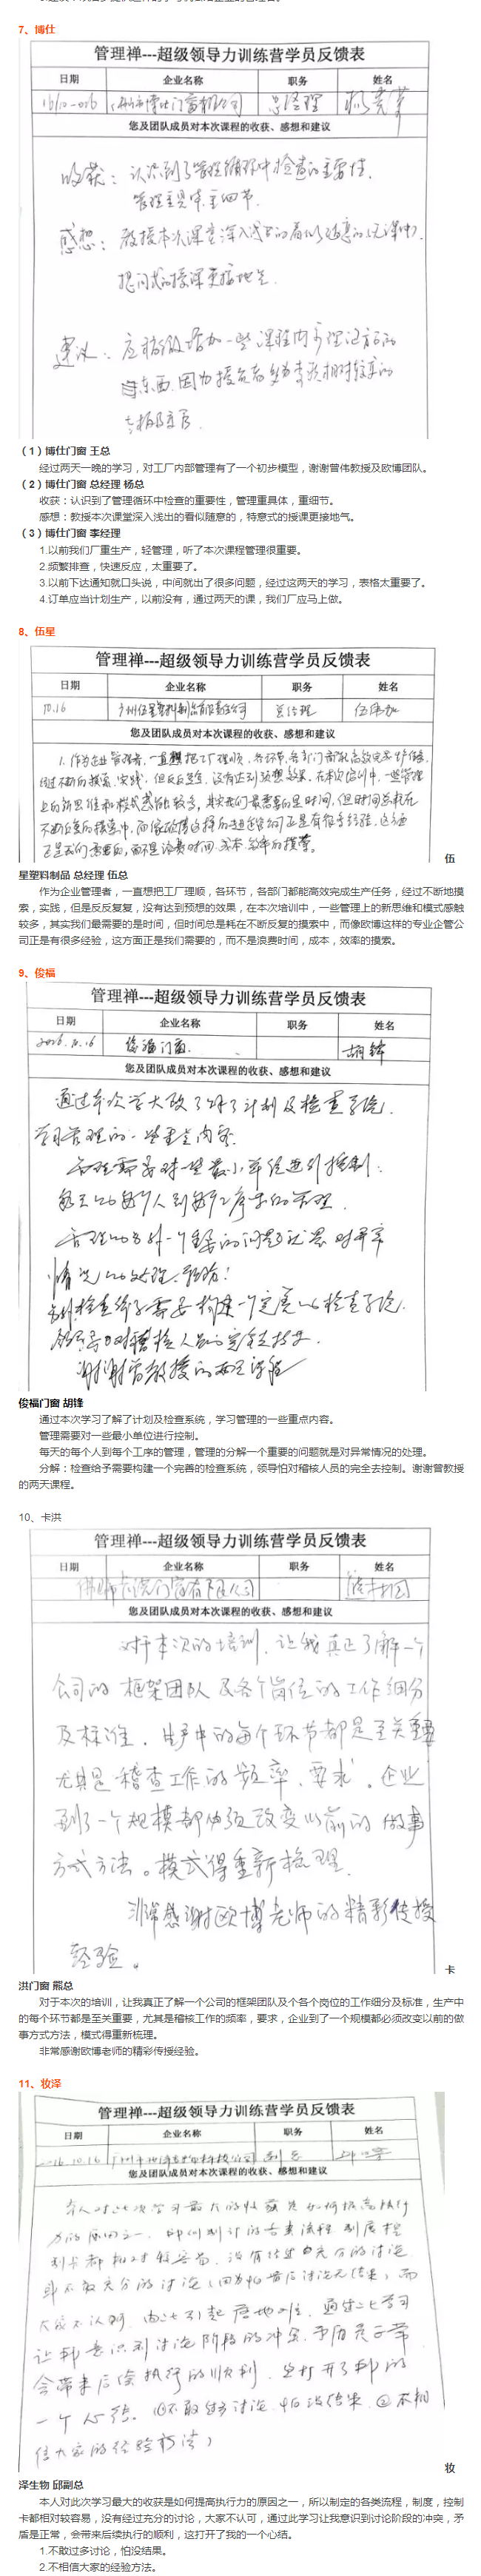 7、博仕
管理禅---超级领导力训练营学员反馈表
日期 企业名称 职务 姓名
总经理
您及团队成员对本次课程的收获、感想和建议
收获：认识到了管理循环中检查的重要性，
管理重具体，重细节。
感想：教授本次课堂深入浅出的看似随意的
授课更接地气。
建议：应稍微增加一些课程内
东西，因为
（1）博仕门窗 王总
经过两天一晚的学习，对工厂内部管理有了一个初步模型，谢谢曾伟教授及欧博团队。
（2）博仕门窗 总经理 杨总
收获：认识到了管理循环中检查的重要性，管理重具体，重细节。
感想：教授本次课堂深入浅出的看似随意的，特意式的授课更接地气。
（3）博仕门窗 李经理
1.以前我们厂重生产，轻管理，听了本次课程管理很重要。
2.频繁排查，快速反应，太重要了。
3.以前下达通知就口头说，中间就出了很多问题，经过这两天的学习，表格太重要了。
4.订单应当计划生产，以前没有，通过两天的课，我们厂应马上做。
8、伍星
管理禅---超级领导力训练营学员反馈表
日期 企业名称 职务 姓名
10.16 总经理
您及团队成员对本次课程的收获、感想和建议
1.作为企业管理者，一直想把工厂理顺，各环节，各部门都能高效完成生产任务，
经过不断的摸索，实践，但反反复复，没有达到预想效果，在本次培训中，一些管理
上的新思维和模式感触较多，其实我们最需要的是时间，但时间总耗在
不断反复的摸索中，而像欧博这样的专业企管公司正是有很多经验，这方面
正是我们需要的，而不是浪费时间，成本，效率的摸索。
伍
星塑料制品 总经理 伍总
作为企业管理者，一直想把工厂理顺，各环节，各部门都能高效完成生产任务，经过不断地摸
索，实践，但是反反复复，没有达到预想的效果，在本次培训中，一些管理上的新思维和模式感触
较多，其实我们最需要的是时间，但时间总是耗在不断反复的摸索中，而像欧博这样的专业企管公
司正是有很多经验，这方面正是我们需要的，而不是浪费时间，成本，效率的摸索。
9、俊福
管理禅---超级领导力训练营学员反馈表
日期 企业名称 职务 姓名
2016.10.16 俊福门窗 胡锋
您及团队成员对本次课程的收获、感想和建议
通过本次学习了解了计划及检查系统，
学习管理的一些重点内容。
管理需要对一些最小单位进行控制；
每天的每个人到每个工序的管理，
管理的另外一个重要的问题就是对异常
情况的处理、
检查 需要构建一个完善的检查系统，
谢谢曾教授的两天课程
俊福门窗 胡锋
通过本次学习了解了计划及检查系统，学习管理的一些重点内容。
管理需要对一些最小单位进行控制。
每天的每个人到每个工序的管理，管理的分解一个重要的问题就是对异常情况的处理。
分解：检查给予需要构建一个完善的检查系统，领导怕对稽核人员的完全去控制。谢谢曾教授
的两天课程。
10、卡洪
管理禅---超级领导力训练营学员反馈表
日期 企业名称 职务 姓名
佛山市卡洪门窗有限公司
您及团队成员对本次课程的收获、感想和建议
对于本次的培训，让我真正了解一个
公司的框架团队及各个岗位的工作细分
及标准，生产中的每个环节都是至关重要
尤其是稽查工作的频率、要求。企业
到了一个规模都必须改变以前的做事
方式方法。模式得重新梳理。
非常感谢欧博老师的精彩传授
经验。
卡
洪门窗 熊总
对于本次的培训，让我真正了解一个公司的框架团队及个各个岗位的工作细分及标准，生产中
的每个环节都是至关重要，尤其是稽核工作的频率，要求，企业到了一个规模都必须改变以前的做
事方式方法，模式得重新梳理。
非常感谢欧博老师的精彩传授经验。
11、妆泽
管理禅---超级领导力训练营学员反馈表
日期 企业名称 职务 姓名
2016.10.16 副总
您及团队成员对本次课程的收获、感想和建议
本人对此次学习最大的收获是如何提高执行
力的原因之一，
没有经过充分的讨论
不敢充分的讨论（因为怕最后讨论无结果）而
大家不认可，由此引起 通过此学习
让我意识到讨论阶段的冲突，矛盾是正常
会带来后续执行的顺利，这打开了我的
一个心结。①不敢 讨论，怕没结果，②不相
信大家的经验方法）
妆
泽生物 邱副总
本人对此次学习最大的收获是如何提高执行力的原因之一，所以制定的各类流程，制度，控制
卡都相对较容易，没有经过充分的讨论，大家不认可，通过此学习让我意识到讨论阶段的冲突，矛
盾是正常，会带来后续执行的顺利，这打开了我的一个心结。
1.不敢过多讨论，怕没结果。
2.不相信大家的经验方法。